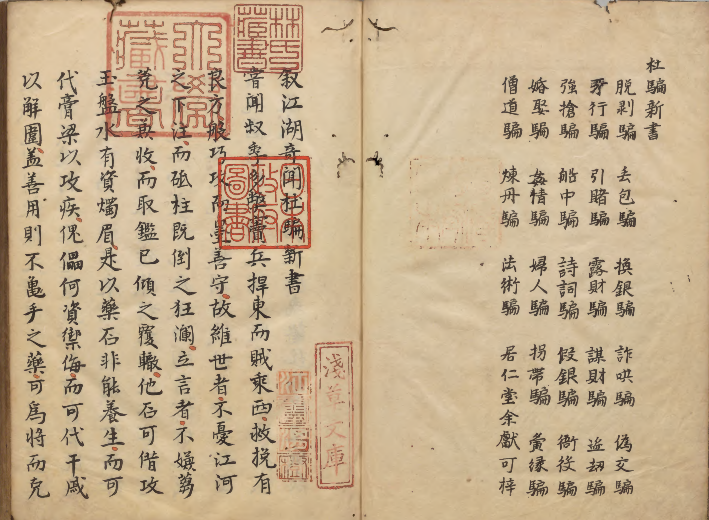 杜騙新書
脫剥騙 丟包騙 換銀騙 詐哄騙 偽交騙
牙行騙 引賭騙 露財騙 謀財騙 盗劫騙
強搶騙 船中騙 詩詞騙 假銀騙 衙役騙
婚娶騙 姦情騙 婦人騙 拐帶騙 夤緣騙
僧道騙 煉丹騙 法術騙 居仁堂余獻可梓
叙江湖奇聞杜騙新書
聞叔季多兵捍東而賊乘西救挽有
良方般巧攻而墨善守故維世者不憂江河
之下注而砥柱既倒之狂瀾立言者不嫌蒭
蕘之兼收而取鑑已傾之覆轍他石可借攻
玉盤水有資燭眉是以藥石非能養生而可
代膏梁以攻疾傀儡何資禦侮而可代干戚
以解圍葢善用則不龜手之藥可為將而克
林氏藏書
淺草文庫